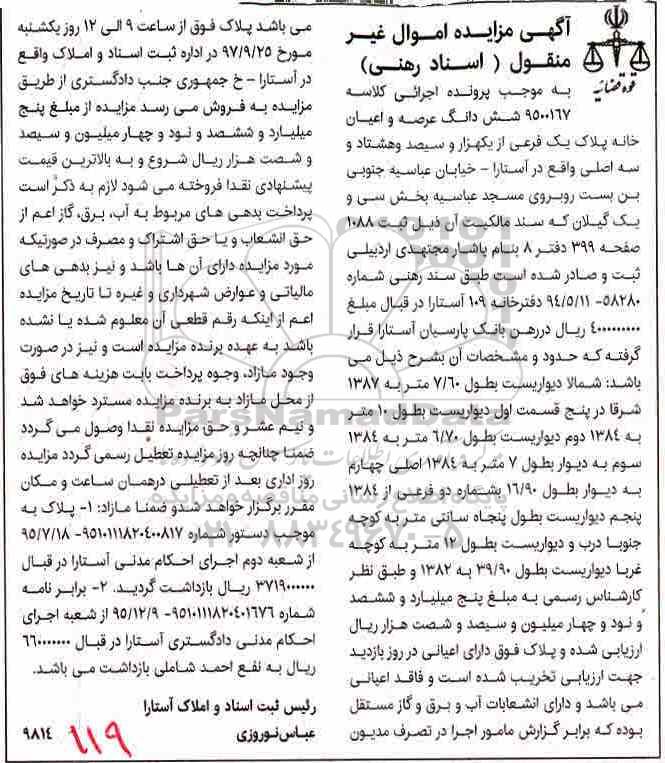 آگهی مزایده اموال غیر
منقول ( اسناد رهنی)
قوه قضائیه
به موجب پرونده اجرائی کلاسه
۹۵۰۰۱۶۷ شش دانگ عرصه و اعیان
خانه پلاک یک فرعی از یکهزار و سیصد وهشتاد و
سه اصلی واقع در آستارا - خیابان عباسیه جنوبی
بن بست روبروی مسجد عباسیه بخش سی و
یک گیلان که سند مالکیت آن ذیل ثبت ۱۰۸۸
صفحه ۳۹۹ دفتر ۸ بنام یاشار مجتهدی اردبیلی
ثبت و صادر شده است طبق سند رهنی شماره
۵۸۲۸۰- ۹۴/۵/۱۱ دفترخانه ۱۰۹ آستارا در قبال مبلغ
۴۰۰۰۰۰۰۰۰۰ ریال دررهن بانک پارسیان آستارا قرار
گرفته که حدود و مشخصات آن بشرح ذیل می
باشد: شمالا دیواریست بطول ۷/۶۰ متر به ۱۳۸۷
شرقا در پنج قسمت اول دیواریست بطول ۱۰ متر
به ۱۳۸۴ دوم دیواریست بطول ۶/۷۰ متر به ۱۳۸۴
سوم به دیوار بطول ۷ متر به ۱۳۸۴ اصلی چهارم
به دیوار بطول ۱۶/۹۰ بشماره دو فرعی از ۱۳۸۴
پنجم دیواریست بطول پنجاه سانتی متر به کوچه
جنوبا درب و دیواریست بطول ۱۲ متر به کوچه
غربا دیواریست بطول ۳۹/۹۰ به ۱۳۸۲ و طبق نظر
کارشناس رسمی به مبلغ پنج میلیارد و ششصد
و نود و چهار میلیون و سیصد و شصت هزار ریال
ارزیابی شده و پلاک فوق دارای اعیانی در روز بازدید
جهت ارزیابی تخریب شده است و فاقد اعیانی
می باشد و دارای انشعابات آب و برق و گاز مستقل
بوده که برابر گزارش مامور اجرا در تصرف مدیون
می باشد پلاک فوق از ساعت ۹ الی ۱۲ روز یکشنبه
مورخ ۹۷/۹/۲۵ در اداره ثبت اسناد و املاک واقع
در آستارا - خ جمهوری جنب دادگستری از طریق
مزایده به فروش می رسد مزایده از مبلغ پنج
میلیارد و ششصد و نود و چهار میلیون و سیصد
و شصت هزار ریال شروع و به بالاترین قیمت
پیشنهادی نقدا فروخته می شود لازم به ذکر است
پرداخت بدهی های مربوط به آب، برق، گاز اعم از
حق انشعاب و یا حق اشتراک و مصرف در صورتیکه
مورد مزایده دارای آن ها باشد و نیز بدهی های
مالیاتی و عوارض شهرداری و غیره تا تاریخ مزایده
اعم از اینکه رقم قطعی آن معلوم شده یا نشده
باشد به عهده برنده مزایده است و نیز در صورت
وجود مازاد، وجوه پرداخت بابت هزینه های فوق
از محل مازاد به برنده مزایده مسترد خواهد شد
و نیم عشر و حق مزایده نقدا وصول می گردد
ضمنا چنانچه روز مزایده تعطیل رسمی گردد مزایده
روز اداری بعد از تعطیلی درهمان ساعت و مکان
مقرر برگزار خواهد شدو ضمنا مازاد: ۱- پلاک به
موجب دستور شماره ۹۵۱۰۱۱۱۸۲۰۴۰۰۸۱۷- ۹۵/۷/۱۸
از شعبه دوم اجرای احکام مدنی آستارا در قبال
۳۷۱۹۰۰۰۰۰۰ ریال بازداشت گردید. ۲- برابر نامه
شماره ۹۵۱۰۱۱۱۸۲۰۴۰۱۶۷۶- ۹۵/۱۲/۹ از شعبه اجرای
احکام مدنی دادگستری آستارا در قبال ۶۶۰۰۰۰۰۰۰
ریال به نفع احمد شاملی بازداشت می باشد.
رئیس ثبت اسناد و املاک آستارا
عباس نوروزی
۹۸۱۴
۱۱۹
ParsNamadData
پایگاه اطلاع رسانی مناقصه و مزایده
۰۲۱-۸۸۳۴۹۶۷۰-۵